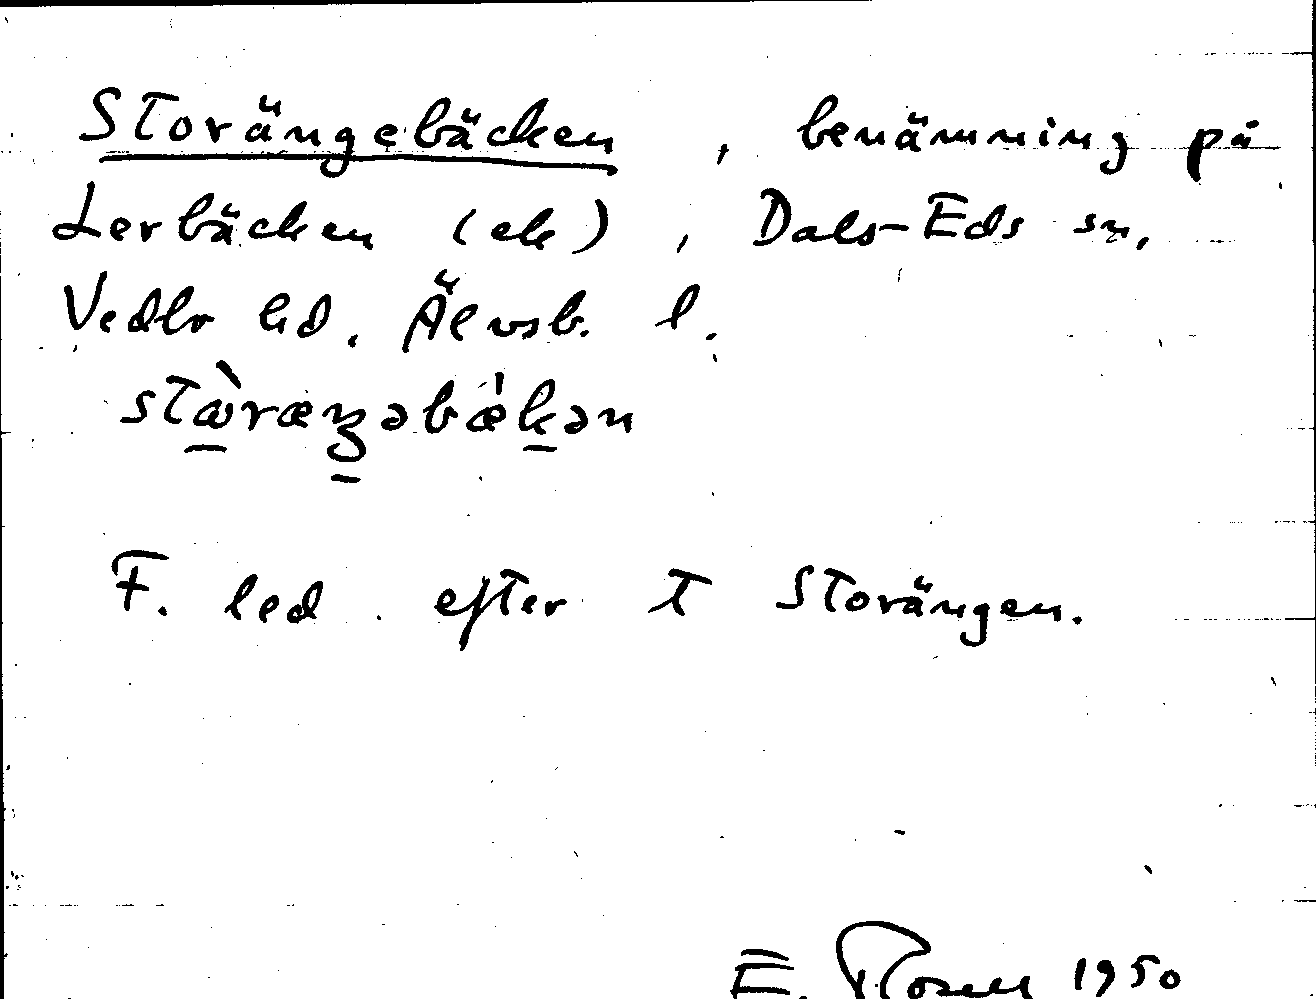 Storängebäcken, benämning på
Lerbäcken (ek), Dals-Eds sn,
Vedbo hd. Älvsb. l.
F. led efter T Storängen.
E. 1950